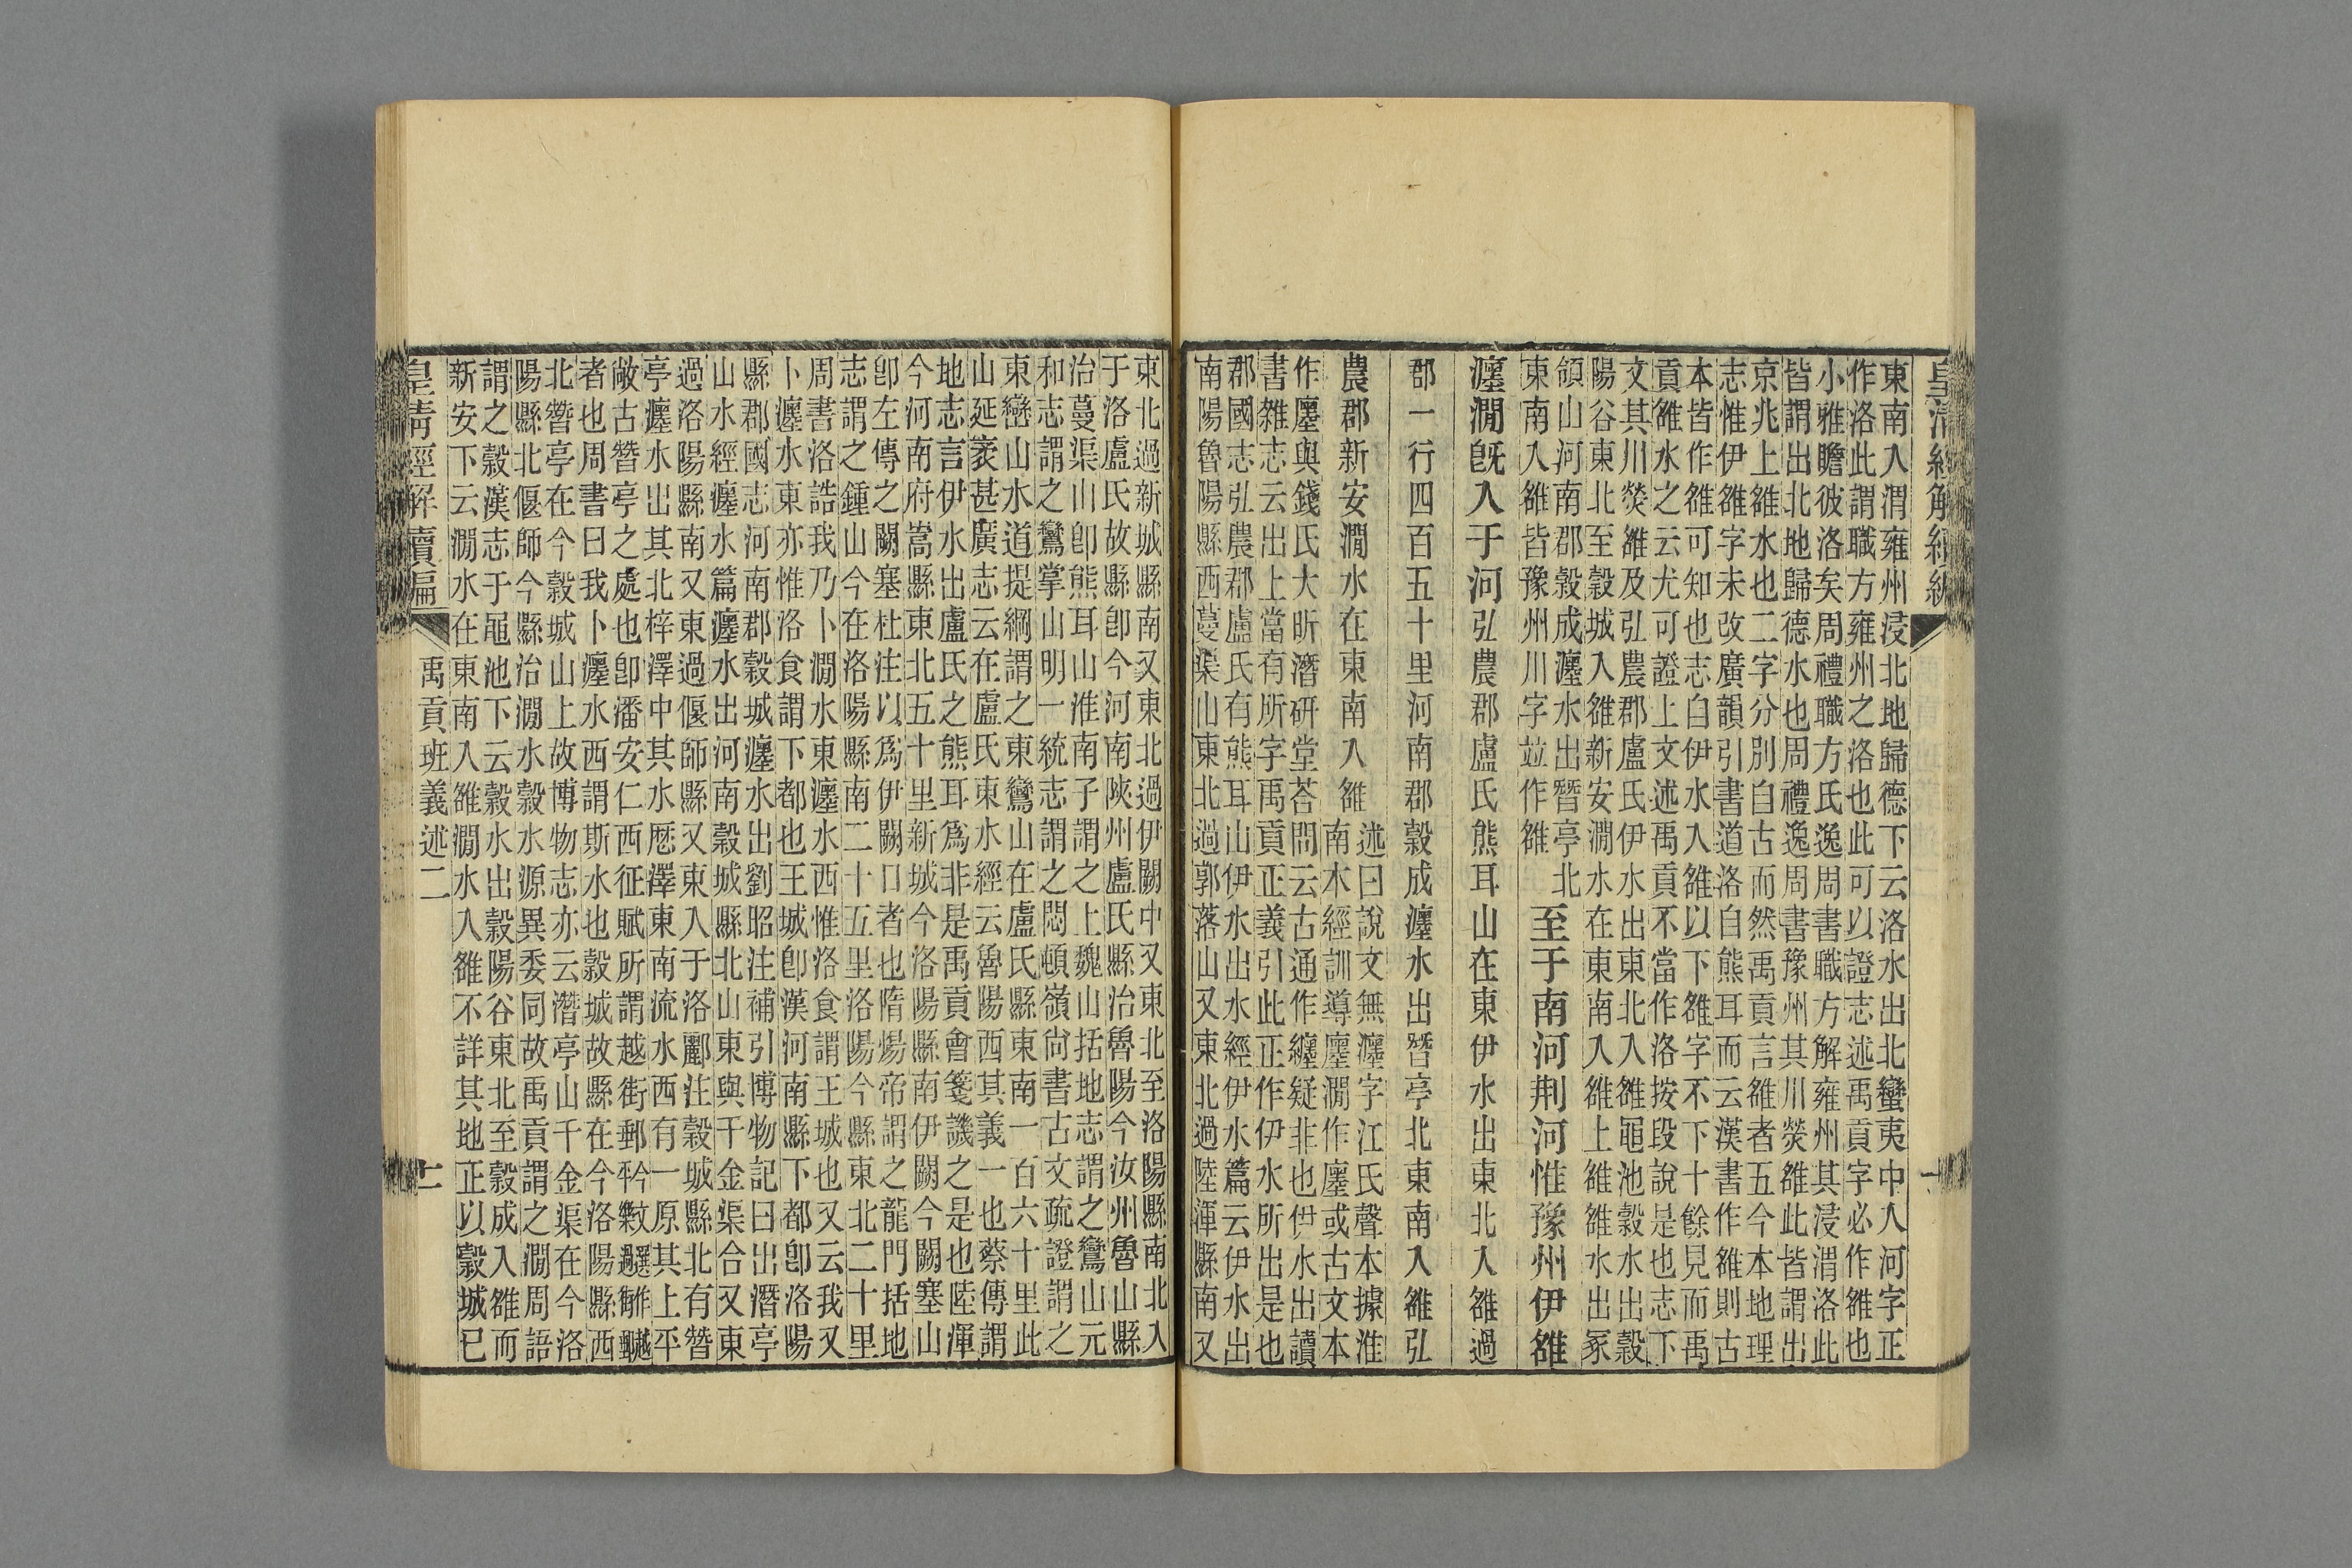 皇清經解續編
東南入渭雍州浸北地歸德下云洛水出北蠻夷中入河字正
作洛此謂職方雍州之洛也此可以證志述禹貢字必作雒也
小雅瞻彼洛矣周禮職方氏逸周書職方解雍州其浸渭洛此
皆謂出北地歸德水也周禮逸周書豫州其川熒雒此皆謂出
京兆上雒水也二字分別自古而然禹貢言雒者五今本地理
志惟伊雒字未改廣韻引書道洛自熊耳而云漢書作雒則古
本皆作雒可知也志自伊水入雒以下雒字不下十餘見而禹
貢雒水之云尤可證上文述禹貢不當作洛按段說是也志下
文其川熒雒及弘農郡盧氏伊水出東北入雒黽池穀水出穀
陽谷東北至穀城入雒新安澗水在東南入雒上雒雒水出冢
領山河南郡穀成瀍水出朁亭北
東南入雒皆豫州川字竝作雒
至于南河荆河惟豫州伊雒
瀍澗旣入于河弘農郡盧氏熊耳山在東伊水出東北入雒過
郡一行四百五十里河南郡穀成瀍水出朁亭北東南入雒弘
農郡新安澗水在東南入雒
述曰說文無瀍字江氏聲本據淮
南本經訓導廛澗作廛或古文本
作廛與錢氏大昕潛研堂荅問云古通作纏疑非也伊水出讀
書雜志云出上當有所字禹貢正義引此正作伊水所出是也
郡國志弘農郡盧氏有熊耳山伊水出水經伊水篇云伊水出
南陽魯陽縣西蔓渠山東北過郭落山又東北過陸渾縣南又
東北過新城縣南又東北過伊闕中又東北至洛陽縣南北入
于洛盧氏故縣卽今河南陝州盧氏縣治魯陽今汝州魯山縣
治蔓渠山卽熊耳山淮南子謂之上魏山括地志謂之鸞山元
和志謂之鸞掌山明一統志謂之悶頓嶺尙書古文疏證謂之
東巒山水道提綱謂之東鸞山在盧氏縣東南一百六十里此
山延袤甚廣志云在盧氏東水經云魯陽西其義一也蔡傳謂
地志言伊水出盧氏之熊耳爲非是禹貢會箋譏之是也陸渾
今河南府嵩縣東北五十里新城今洛陽縣南伊闕今闕塞山
卽左傳之闕塞杜注以爲伊闕口者也隋煬帝謂之龍門括地
志謂之鍾山今在洛陽縣南二十五里洛陽今縣東北二十里
周書洛誥我乃卜澗水東瀍水西惟洛食謂王城也又云我又
卜瀍水東亦惟洛食謂下都也王城卽漢河南縣下都卽洛陽
縣郡國志河南郡穀城瀍水出劉昭注補引博物記曰出潛亭
山水經瀍水篇瀍水出河南穀城縣北山東與千金渠合又東
過洛陽縣南又東過偃師縣又東入于洛酈注穀城縣北有朁
亭瀍水出其北梓澤中其水厯澤東南流水西有一原其上平
敞古朁亭之處也卽潘安仁西征賦所謂越街郵
者也周書曰我卜瀍水西謂斯水也穀城故縣在今洛陽縣西
北朁亭在今穀城山上故博物志亦云潛亭山千金渠在今洛
陽縣北偃師今縣治澗水穀水源異委同故禹貢謂之澗周語
謂之穀漢志于黽池下云穀水出穀陽谷東北至穀成入雒而
新安下云澗水在東南入雒澗水入雒不詳其地正以穀城已
皇清經解續編
禹貢班義述二
二